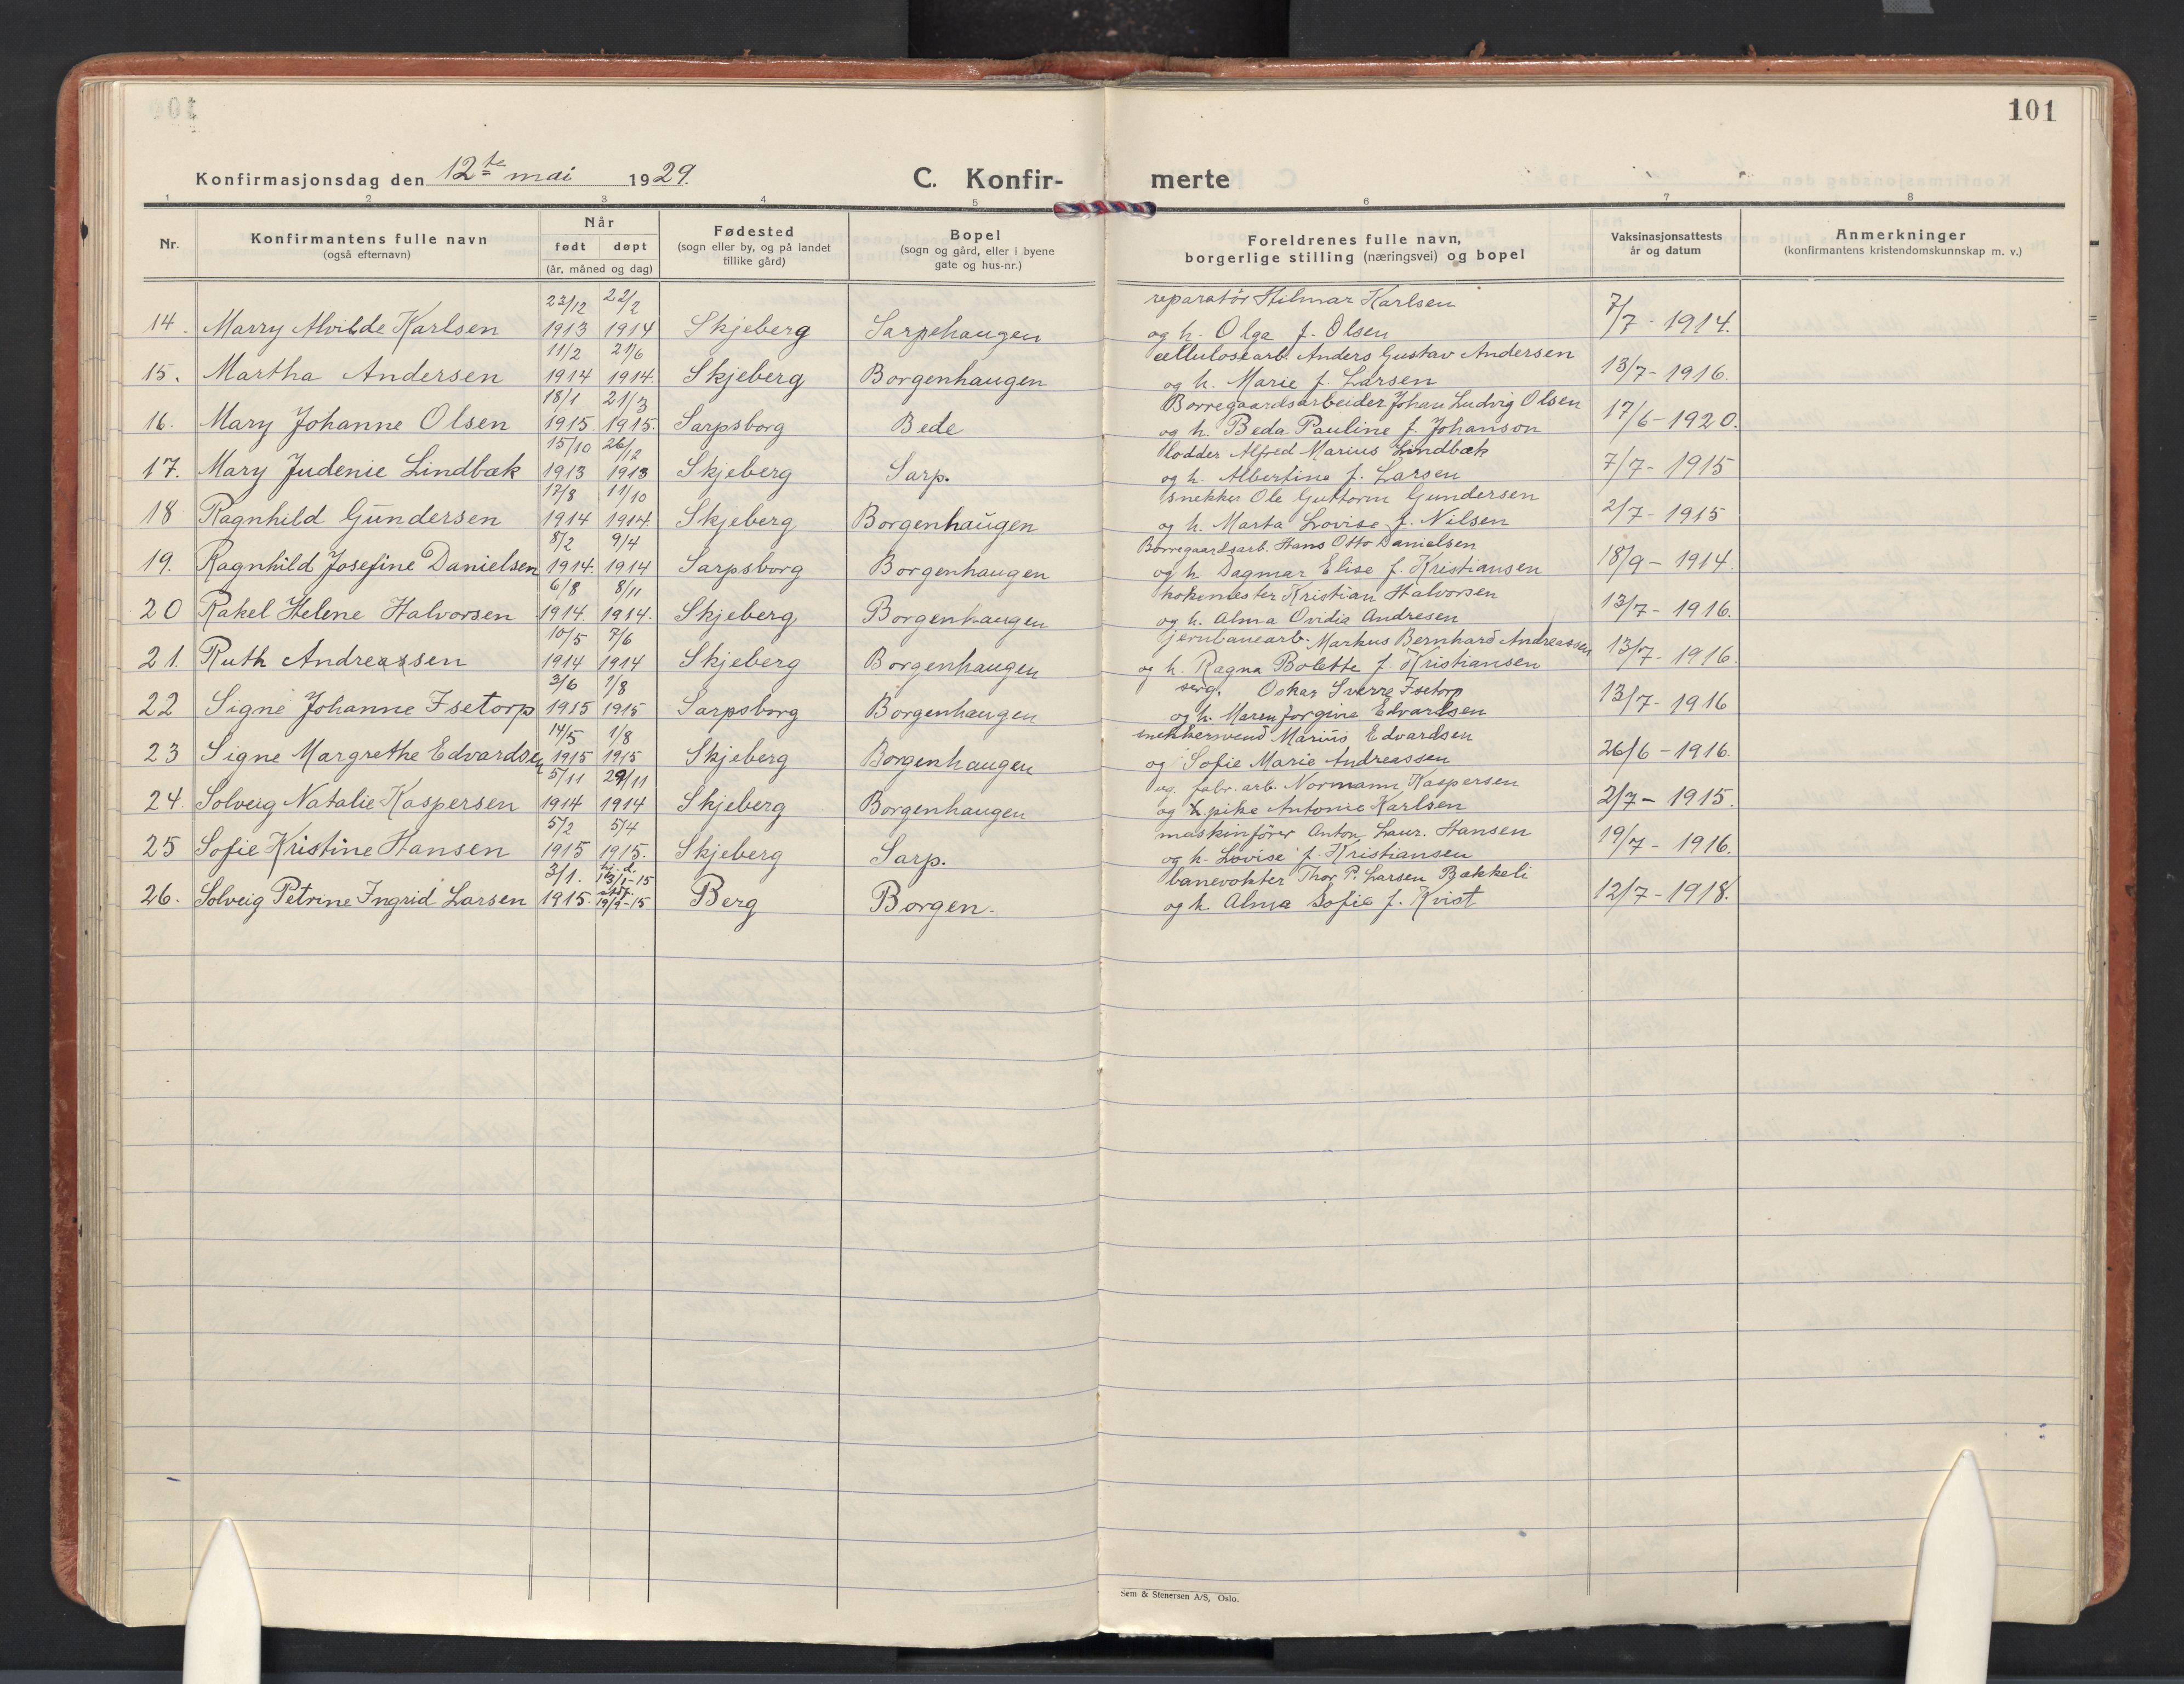 101
Konfirmasjonsdag den 12te mai 1929.
C. Konfir-
merte
1 2 3 4 5 6 7 8
Nr.
Konfirmantens fulle navn
(også efternavn)
Når
født døpt
(år, måned og dag)
Fødested
(sogn eller by, og på landet
tillike gård)
Bopel
(sogn og gård, eller i byene
gate og hus-nr.)
Foreldrenes fulle navn,
borgerlige stilling (næringsvei) og bopel
Vaksinasjonsattests
år og datum
Anmerkninger
(konfirmantens kristendomskunnskap m. v.)
23/12 22/2 reparatör Hilmar Karlsen
14. Marry Alvilde Karlsen 1913 1914 Skjeberg Sarpehaugen og h. Olga f. Olsen 7/7 - 1914.
11/2 21/6 cellulosearb. Anders Gustav Andersen
15. Martha Andersen 1914 1914. Skjeberg Borgenhaugen og h. Marie f. Larsen 13/7 - 1916.
18/1 21/3 Borregaardsarbeider Johan Ludvig Olsen
16. Mary Johanne Olsen 1915. 1915. Sarpsborg Bede og h. Beda Pauline f. Johanson 17/6 - 1920.
15/10 26/12 lodder Alfred Marius Lindbæk
17. Mary Judenie Lindbæk 1913 1913 Skjeberg Sarp. og h. Albertine f. Larsen 7/7 - 1915
17/8 11/10 snekker Ole Guttorm Gundersen
18 Ragnhild Gundersen 1914 1914. Skjeberg Borgenhaugen og h. Marta Lovise f. Nilsen 2/7 - 1915
8/2 9/4 Borregaardsarb. Hans Otto Danielsen
19. Ragnhild Josefine Danielsen 1914. 1914 Sarpsborg Borgenhaugen og h. Dagmar Elise f. Kristiansen 18/9 - 1914.
6/8 8/11 kokemester Kristian Halvorsen
20 Rakel Helene Halvorsen 1914. 1914. Skjeberg Borgenhaugen og h. Alma Ovidia Andresen 13/7 - 1916.
10/5 7/6 jernbanearb. Markus Bernhard Andreassen
21. Ruth Andreassen 1914 1914 Skjeberg Borgenhaugen og h. Ragna Bolette f. Kristiansen 13/7 - 1916.
3/6 1/8 serg. Oskar Sverre Isetorp
22 Signe Johanne Isetorp 1915 1915 Sarpsborg Borgenhaugen og h. Maren Jorgine Edvardsen 13/7 - 1916
14/5 1/8 snekkersvend Marius Edvardsen
23 Signe Margrethe Edvardsen 1915 1915 Skjeberg Borgenhaugen og Sofie Marie Andreassen 26/6 - 1916.
5/11 29/11 ug. fabr. arb. Normann Kaspersen
24. Solveig Natalie Kaspersen 1914 1914 Skjeberg Borgenhaugen og pike Antonie Karlsen 2/7 - 1915.
5/2 5/4 maskinfører Anton Laur. Hansen
25 Sofie Kristine Hansen 1915 1915. Skjeberg Sarp. og h. Lovise f. Kristiansen 19/7 - 1916.
3/1. hj. d. 13/1-15 banevokter Thor P. Larsen Bækkeli
26. Solveig Petrine Ingrid Larsen 1915. 19/9-15 Berg Borgen. og h. Alma Sofie f. Kvist 12/7 - 1918.
Sem & Stenersen A/S, Oslo.